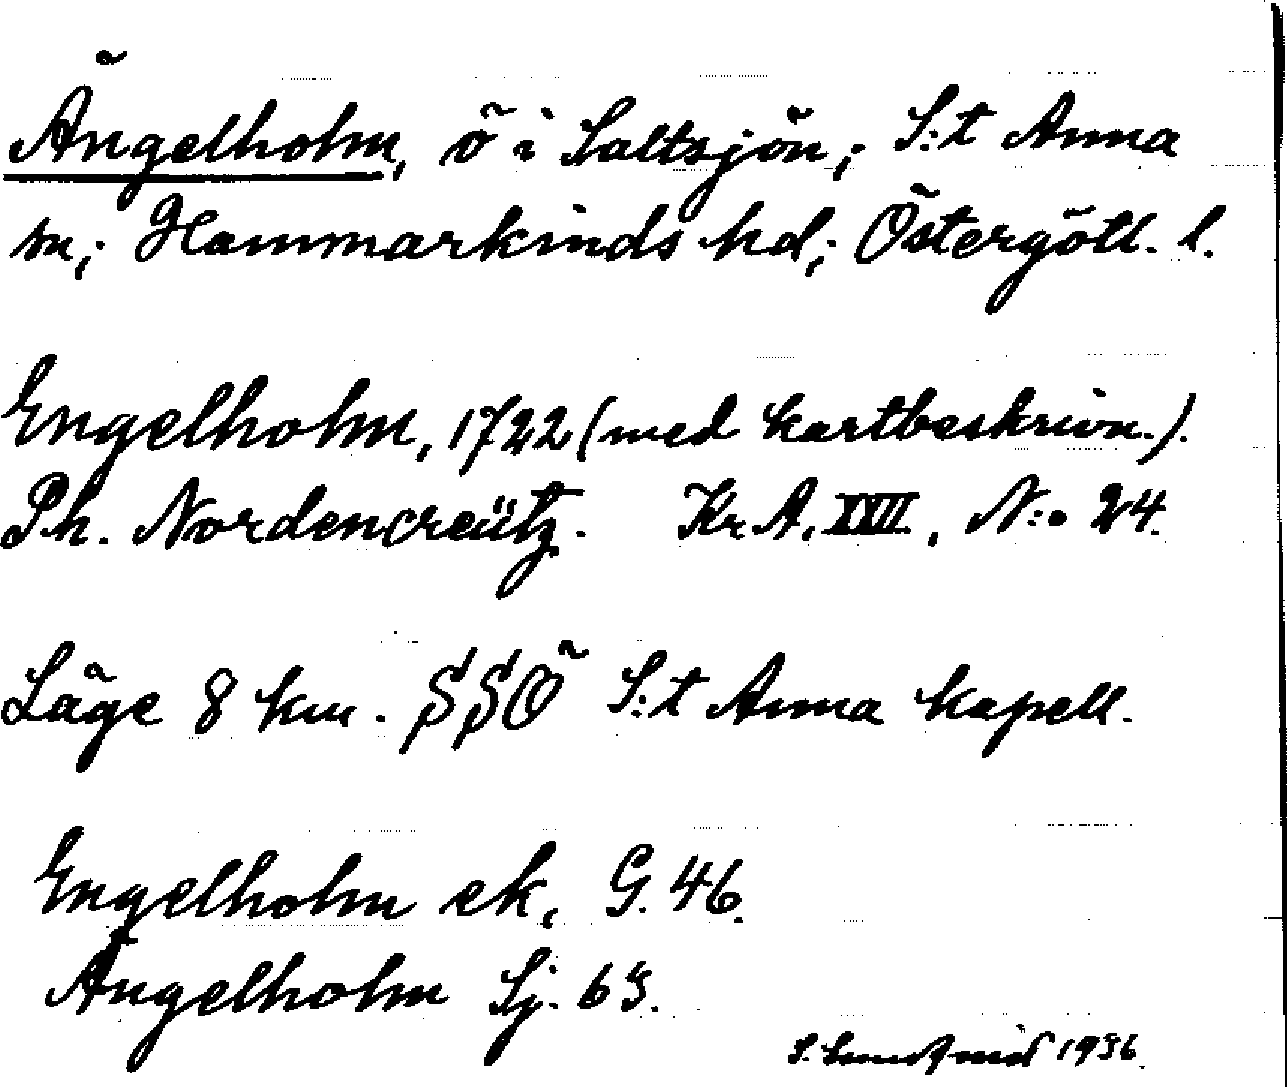 Ängelholm, ö i Saltsjön; S:t Anna
sn; Hammarkinds hd; Östergötl. l.
Engelholm, 1722 (med kartbeskrivn.).
Ph. Nordencreütz. Kr. A. XXVII, N:o 24.
Läge 8 km. SSÖ S:t Anna kapell.
Engelholm ek, G. 46.
Ängelholm Sj. 63.
1936